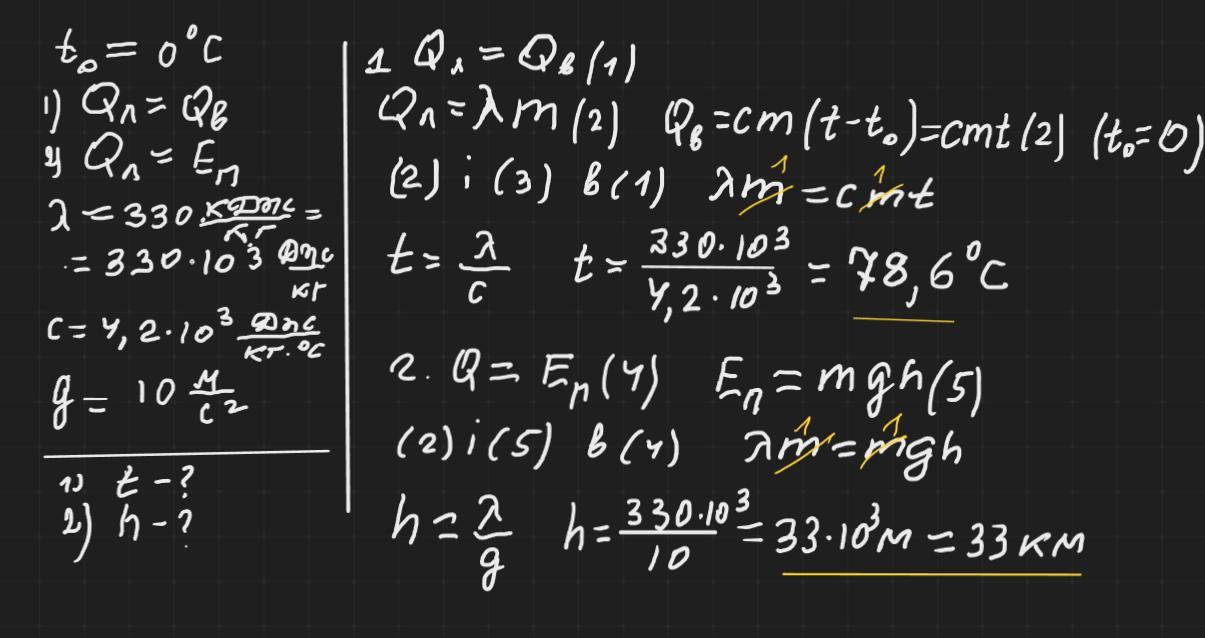 t₀ = 0°C
1) Qл = Qв
2) Qл = Eп
λ = 330 кДж/кг =
= 330·10³ Дж/кг
c = 4,2·10³ Дж/кг·°C
g = 10 м/с²
1) t - ?
2) h - ?
1 Qл = Qв (1)
Qл = λm (2) Qв = cm(t-t₀) = cmt (2) (t₀=0)
(2) і (3) в (1) λm = cmt
t = λ/c t = 330·10³/4,2·10³ = 78,6°C
2. Q = Eп (4) Eп = mgh (5)
(2) і (5) в (4) λm = mgh
h = λ/g h = 330·10³/10 = 33·10³м = 33 км